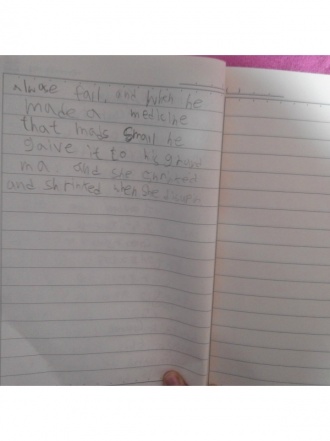 alwase fail, and when he
made a medicine
that mads small he
gaive it to his grand
ma. and she
and shrinked when she